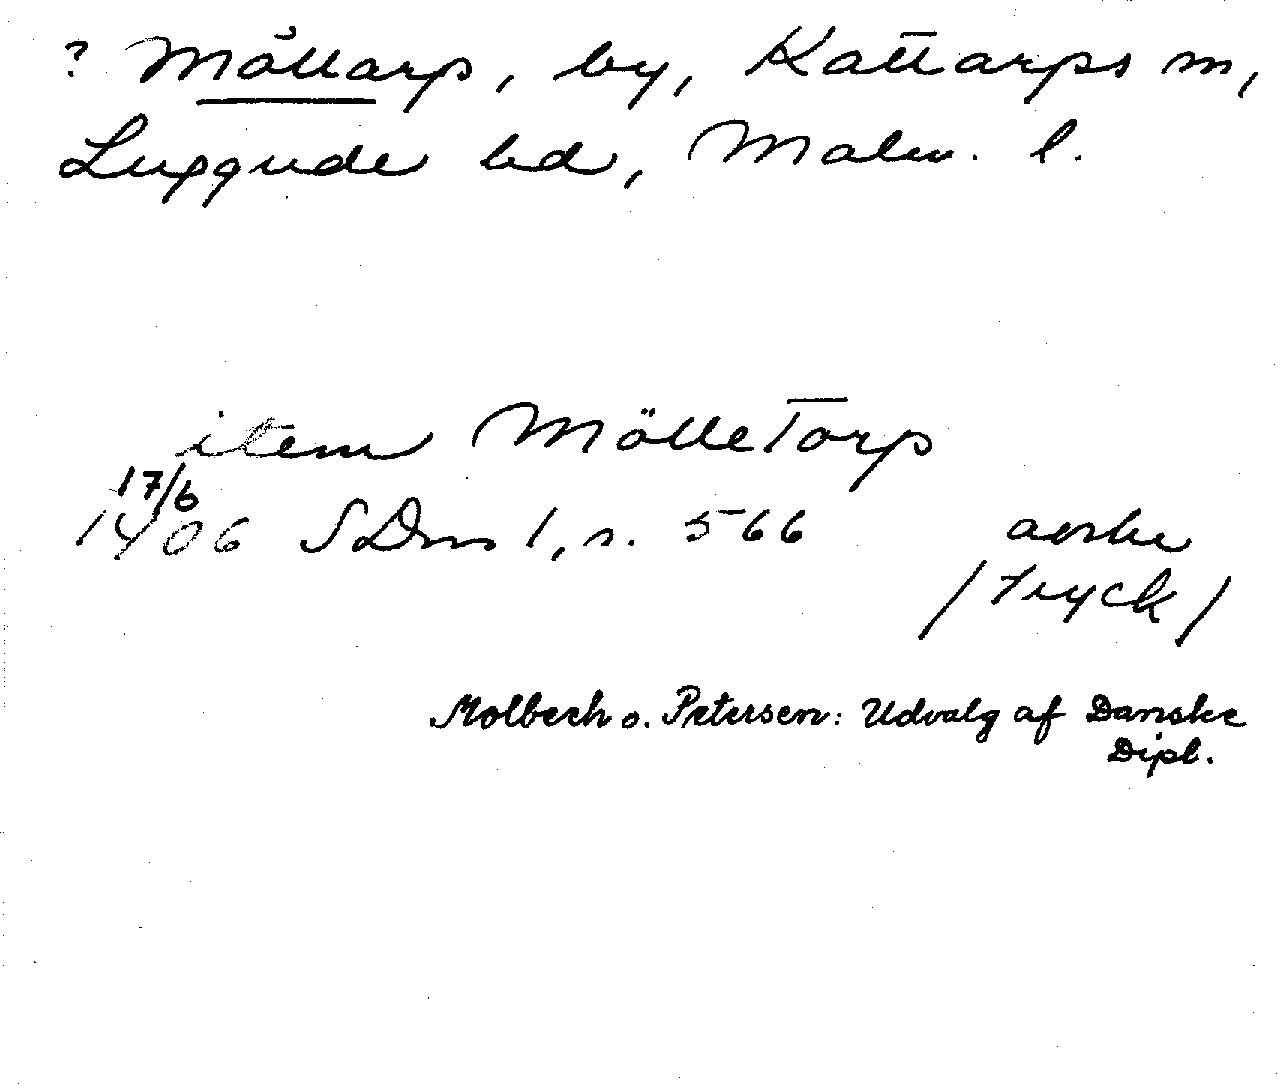 ? Möllarp, by, Kattarps sn,
Luggude hd, Malm. l.
item MölleTorp
17/6
1406 SDns 1, s. 566 avskr
/tryck/
Molbech o. Petersen: Udvalg af Danske
Dipl.